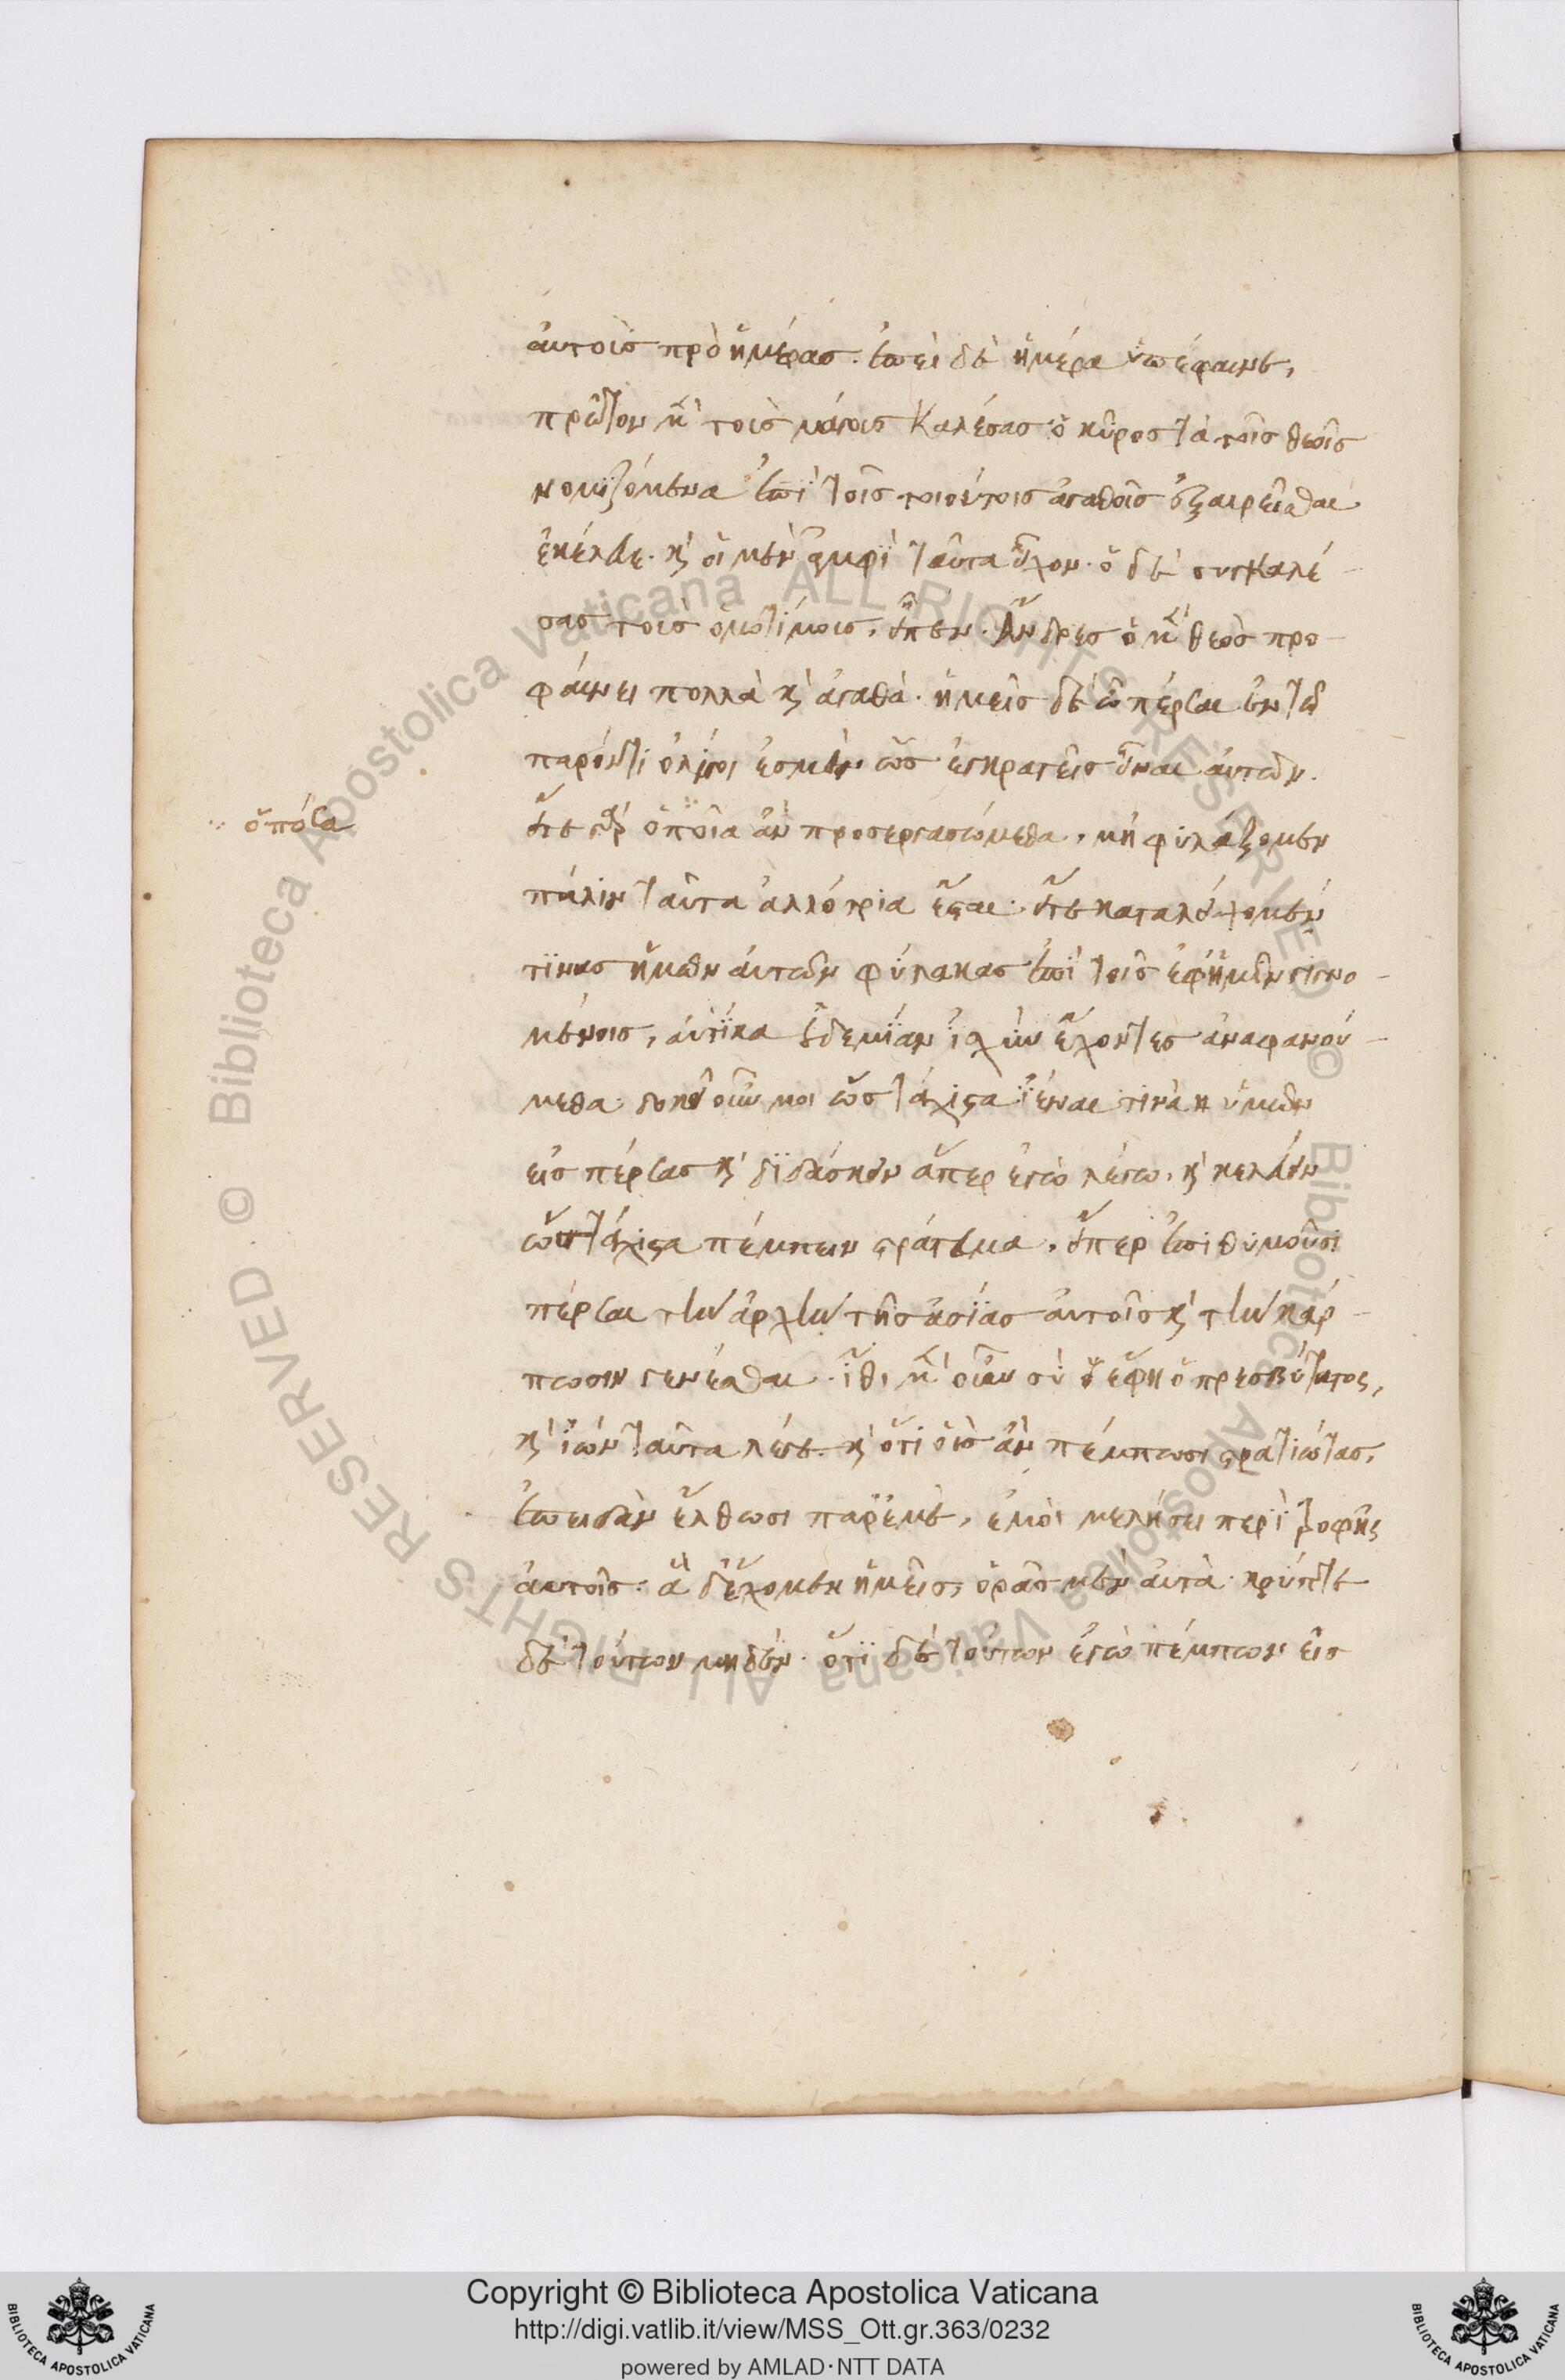 αὐτοῖς πρὸ ἡμέρας. ἐπεὶ δὲ ἡμέρα ὑπέφαινε,
πρῶτον μὲν τοὺς μάγους καλέσας ὁ κῦρος τὰ τοῖς θεοῖς
νομιζόμενα ἐπὶ τοῖς τοιούτοις ἀγαθοῖς ἐξαιρεῖσθαι
ἐκέλευε. καὶ οἱ μὲν ἀμφὶ ταῦτα εἶχον. ὁ δὲ συγκαλέ-
σας τοὺς ὁμοτίμους, εἶπεν. Ἄνδρες ὁ μὲν θεὸς προ-
φαίνει πολλὰ καὶ ἀγαθά. ἡμεῖς δὲ ὦ πέρσαι ἐν τῷ
παρόντι ὀλίγοι ἐσμὲν ὡς ἐγκρατεῖς εἶναι αὐτῶν.
εἴτε γὰρ ὁποῖα ἂν προσεργασώμεθα, μὴ φυλάξομεν
ὁπόσα
πάλιν ταῦτα ἀλλότρια ἔσται. εἴτε καταλείψομέν
τινας ἡμῶν αὐτῶν φύλακας ἐπὶ τοῖς ἐφ' ἡμῖν γιγνο-
μένοις, αὐτίκα οὐδεμίαν ἰσχὺν ἔχοντες ἀναφανού-
μεθα. δοκεῖ οὖν μοι ὡς τάχιστα ἰέναι τινὰ ὑμῶν
εἰς πέρσας καὶ διδάσκειν ἅπερ ἐγὼ λέγω, καὶ κελεύειν
ὡς τάχιστα πέμπειν στράτευμα, εἴπερ ἐπιθυμοῦσι
πέρσαι τὴν ἀρχὴν τῆς ἀσίας αὐτοῖς καὶ τὴν κάρ-
πωσιν γενέσθαι. ἴθι μὲν οὖν σὺ ἔφη ὁ πρεσβύτατος,
καὶ ἰὼν ταῦτα λέγε. καὶ ὅτι οὓς ἂν πέμπωσι στρατιώτας,
ἐπειδὰν ἔλθωσι παρ' ἐμέ, ἐμοὶ μελήσει περὶ τροφῆς
αὐτοῖς. ἃ δ' ἔχομεν ἡμεῖς, ὁρᾷς μὲν αὐτά. κρύπτε
δὲ τούτων μηδέν. ὅτι δὲ τούτων ἐγὼ πέμπων εἰς
Copyright © Biblioteca Apostolica Vaticana
http://digi.vatlib.it/view/MSS_Ott.gr.363/0232
powered by AMLAD·NTT DATA
BIBLIOTECA APOSTOLICA VATICANA
BIBLIOTECA APOSTOLICA VATICANA
Biblioteca Apostolica Vaticana ALL RIGHTS RESERVED ©
Biblioteca Apostolica Vaticana ALL RIGHTS RESERVED ©